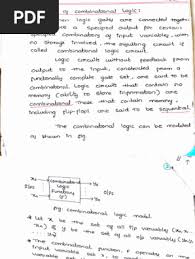 PDF
of combinational logic:
when logic gates are connected together
a specified output for certain
specified combinations of input variables, with
no storage involved, the resulting circuit is
called combinational logic circuit.
Logic circuit without feedback from
output to the input, constructed from a
functionally complete gate set, are said to be
combinational. Logic circuits that contain no
memory (ability to store information) are
combinational. Those that contain memory,
including flip-flops, are said to be sequential.
The combinational logic can be modeled
as shown in fig
Combinational
logic
function
(F)
fig: combinational logic model.
Let X be the set of all i/p variables
be the set of all o/p variables
The combinational function, F operates on